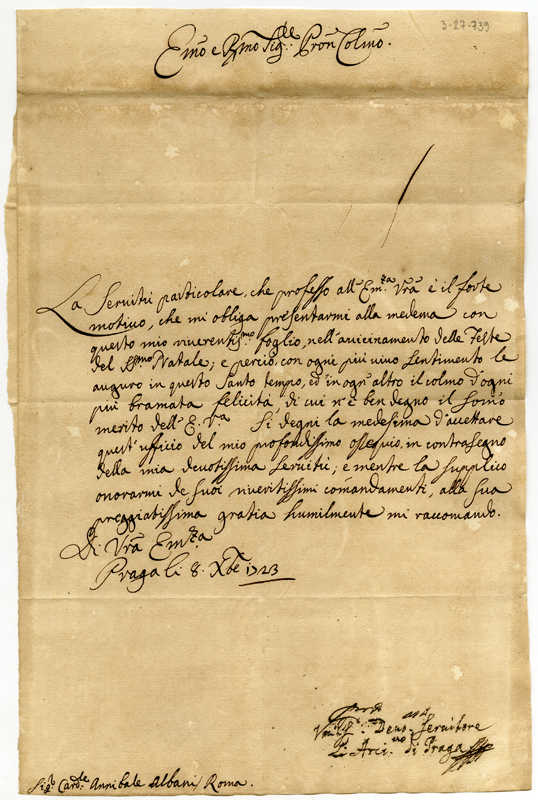 3-27-739
Emõ e Rmo Sig.re Pron Colmo.
La Seruitù particolare, che professo all' Em.za Vrã è il forte
motiuo, che mi obliga presentarmi alla medema con
questo mio riuerentis.mo foglio, nell'auicinamento delle Feste
del SSmo Natale; e perciò, con ogni più uiuo sentimento le
auguro in questo Santo tempo, ed in ogn' altro il colmo d'ogni
più bramata felicità di cui n'è ben degno il somõ
merito dell' E. V.ra Si degni la medesima d'accettare
quest' ufficio del mio profondissimo ossequio, in contrasegno
della mia deuotissima seruitù; e mentre la supplico
onorarmi de suoi riueritissimi comandamenti, alla sua
preggiatissima gratia humilmente mi raccomando.
Di Vrã Em.za
Praga li 8. Xbre 1723
Deuo. Seruitore
L'Arci. di Praga
Sig.r Card.le Annibale Albani Roma.